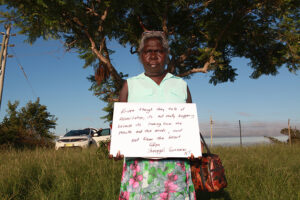 Even though they talk of
reconciliation, its not really happening
because its coming from the
mouth and the minds, and
not from the heart